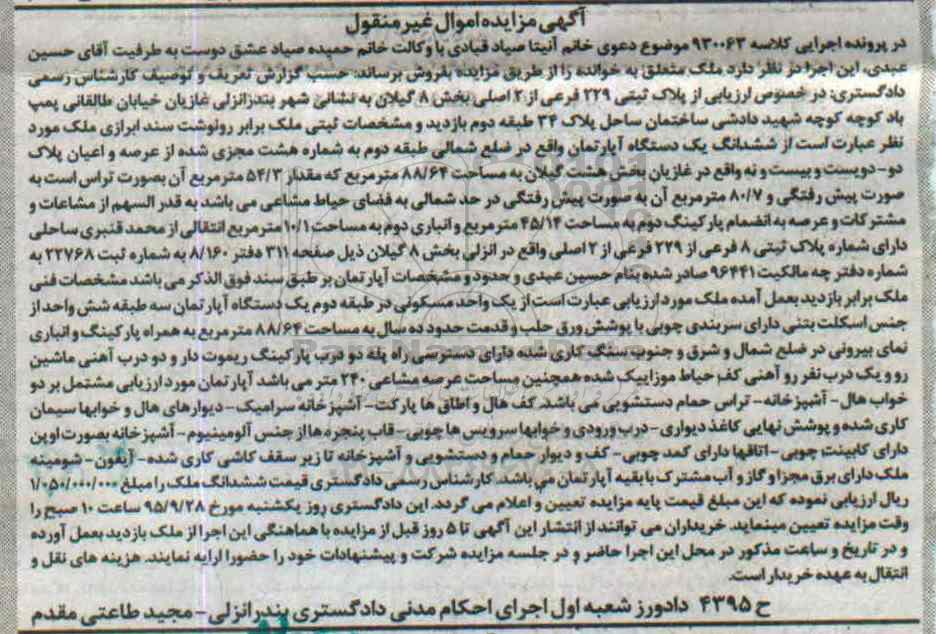 آگهی مزایده اموال غیر منقول
در پرونده اجرایی کلاسه ۹۳۰۰۶۳ موضوع دعوی خانم آنیتا صیاد قبادی با وکالت خانم حمیده صیاد عشق دوست به طرفیت آقای حسین
عبدی، این اجرا در نظر دارد ملک متعلق به خوانده را از طریق مزایده بفروش برساند: حسب گزارش تعریف و توصیف کارشناس رسمی
دادگستری: در خصوص ارزیابی از پلاک ثبتی ۲۲۹ فرعی از ۲ اصلی بخش ۸ گیلان به نشانی شهر بندرانزلی غازیان خیابان طالقانی پمپ
باد کوچه کوچه شهید دادشی ساختمان ساحل پلاک ۳۴ طبقه دوم بازدید و مشخصات ثبتی ملک برابر رونوشت سند ابرازی ملک مورد
نظر عبارت است از ششدانگ یک دستگاه آپارتمان واقع در ضلع شمالی طبقه دوم به شماره هشت مجزی شده از عرصه و اعیان پلاک
دو- دویست و بیست و نه واقع در غازیان بخش هشت گیلان به مساحت ۸۸/۶۴ مترمربع که مقدار ۵۴/۳ مترمربع آن بصورت تراس است به
صورت پیش رفتگی و ۸۰/۷ مترمربع آن به صورت پیش رفتگی در حد شمالی به فضای حیاط مشاعی می باشد به قدر السهم از مشاعات و
مشترکات و عرصه به انضمام پارکینگ دوم به مساحت ۴۵/۱۴ مترمربع و انباری دوم به مساحت ۱۰/۱ مترمربع انتقالی از محمد قنبری ساحلی
دارای شماره پلاک ثبتی ۸ فرعی از ۲۲۹ فرعی از ۲ اصلی واقع در انزلی بخش ۸ گیلان ذیل صفحه ۳۱۱ دفتر ۸/۱۶۰ به شماره ثبت ۲۲۷۶۸ به
شماره دفتر چه مالکیت ۹۶۴۴۱ صادر شده بنام حسین عبدی و حدود و مشخصات آپارتمان بر طبق سند فوق الذکر می باشد مشخصات فنی
ملک برابر بازدید بعمل آمده ملک مورد ارزیابی عبارت است از یک واحد مسکونی در طبقه دوم یک دستگاه آپارتمان سه طبقه شش واحد از
جنس اسکلت بتنی دارای سربندی چوبی با پوشش ورق حلب و قدمت حدود ده سال به مساحت ۸۸/۶۴ مترمربع به همراه پارکینگ و انباری
نمای بیرونی در ضلع شمال و شرق و جنوب سنگ کاری شده دارای دسترسی راه پله دو درب پارکینگ ریموت دار و دو درب آهنی ماشین
رو و یک درب نفر رو آهنی کف حیاط موزاییک شده همچنین مساحت عرصه مشاعی ۲۴۰ متر می باشد آپارتمان مورد ارزیابی مشتمل بر دو
خواب هال- آشپزخانه- تراس حمام دستشویی می باشد. کف هال و اطاق ها پارکت- آشپزخانه سرامیک- دیوارهای هال و خوابها سیمان
کاری شده و پوشش نهایی کاغذ دیواری- درب ورودی و خوابها سرویس ها چوبی- قاب پنجره ها از جنس آلومینیوم- آشپزخانه بصورت اوپن
دارای کابینت چوبی- اتاقها دارای کمد چوبی- کف و دیوار حمام و دستشویی و آشپزخانه تا زیر سقف کاشی کاری شده- آیفون- شومینه
ملک دارای برق مجزا و گاز و آب مشترک با بقیه آپارتمان می باشد. کارشناس رسمی دادگستری قیمت ششدانگ ملک را مبلغ ۱/۰۵۰/۰۰۰/۰۰۰
ریال ارزیابی نموده که این مبلغ قیمت پایه مزایده تعیین و اعلام می گردد. این دادگستری روز یکشنبه مورخ ۹۵/۹/۲۸ ساعت ۱۰ صبح را
وقت مزایده تعیین مینماید. خریداران می توانند از انتشار این آگهی تا ۵ روز قبل از مزایده با هماهنگی این اجرا از ملک بازدید بعمل آورده
و در تاریخ و ساعت مذکور در محل این اجرا حاضر و در جلسه مزایده شرکت و پیشنهادات خود را حضورا ارایه نمایند. هزینه های نقل و
انتقال به عهده خریدار است.
ح ۴۳۹۵ دادورز شعبه اول اجرای احکام مدنی دادگستری بندرانزلی- مجید طاعتی مقدم